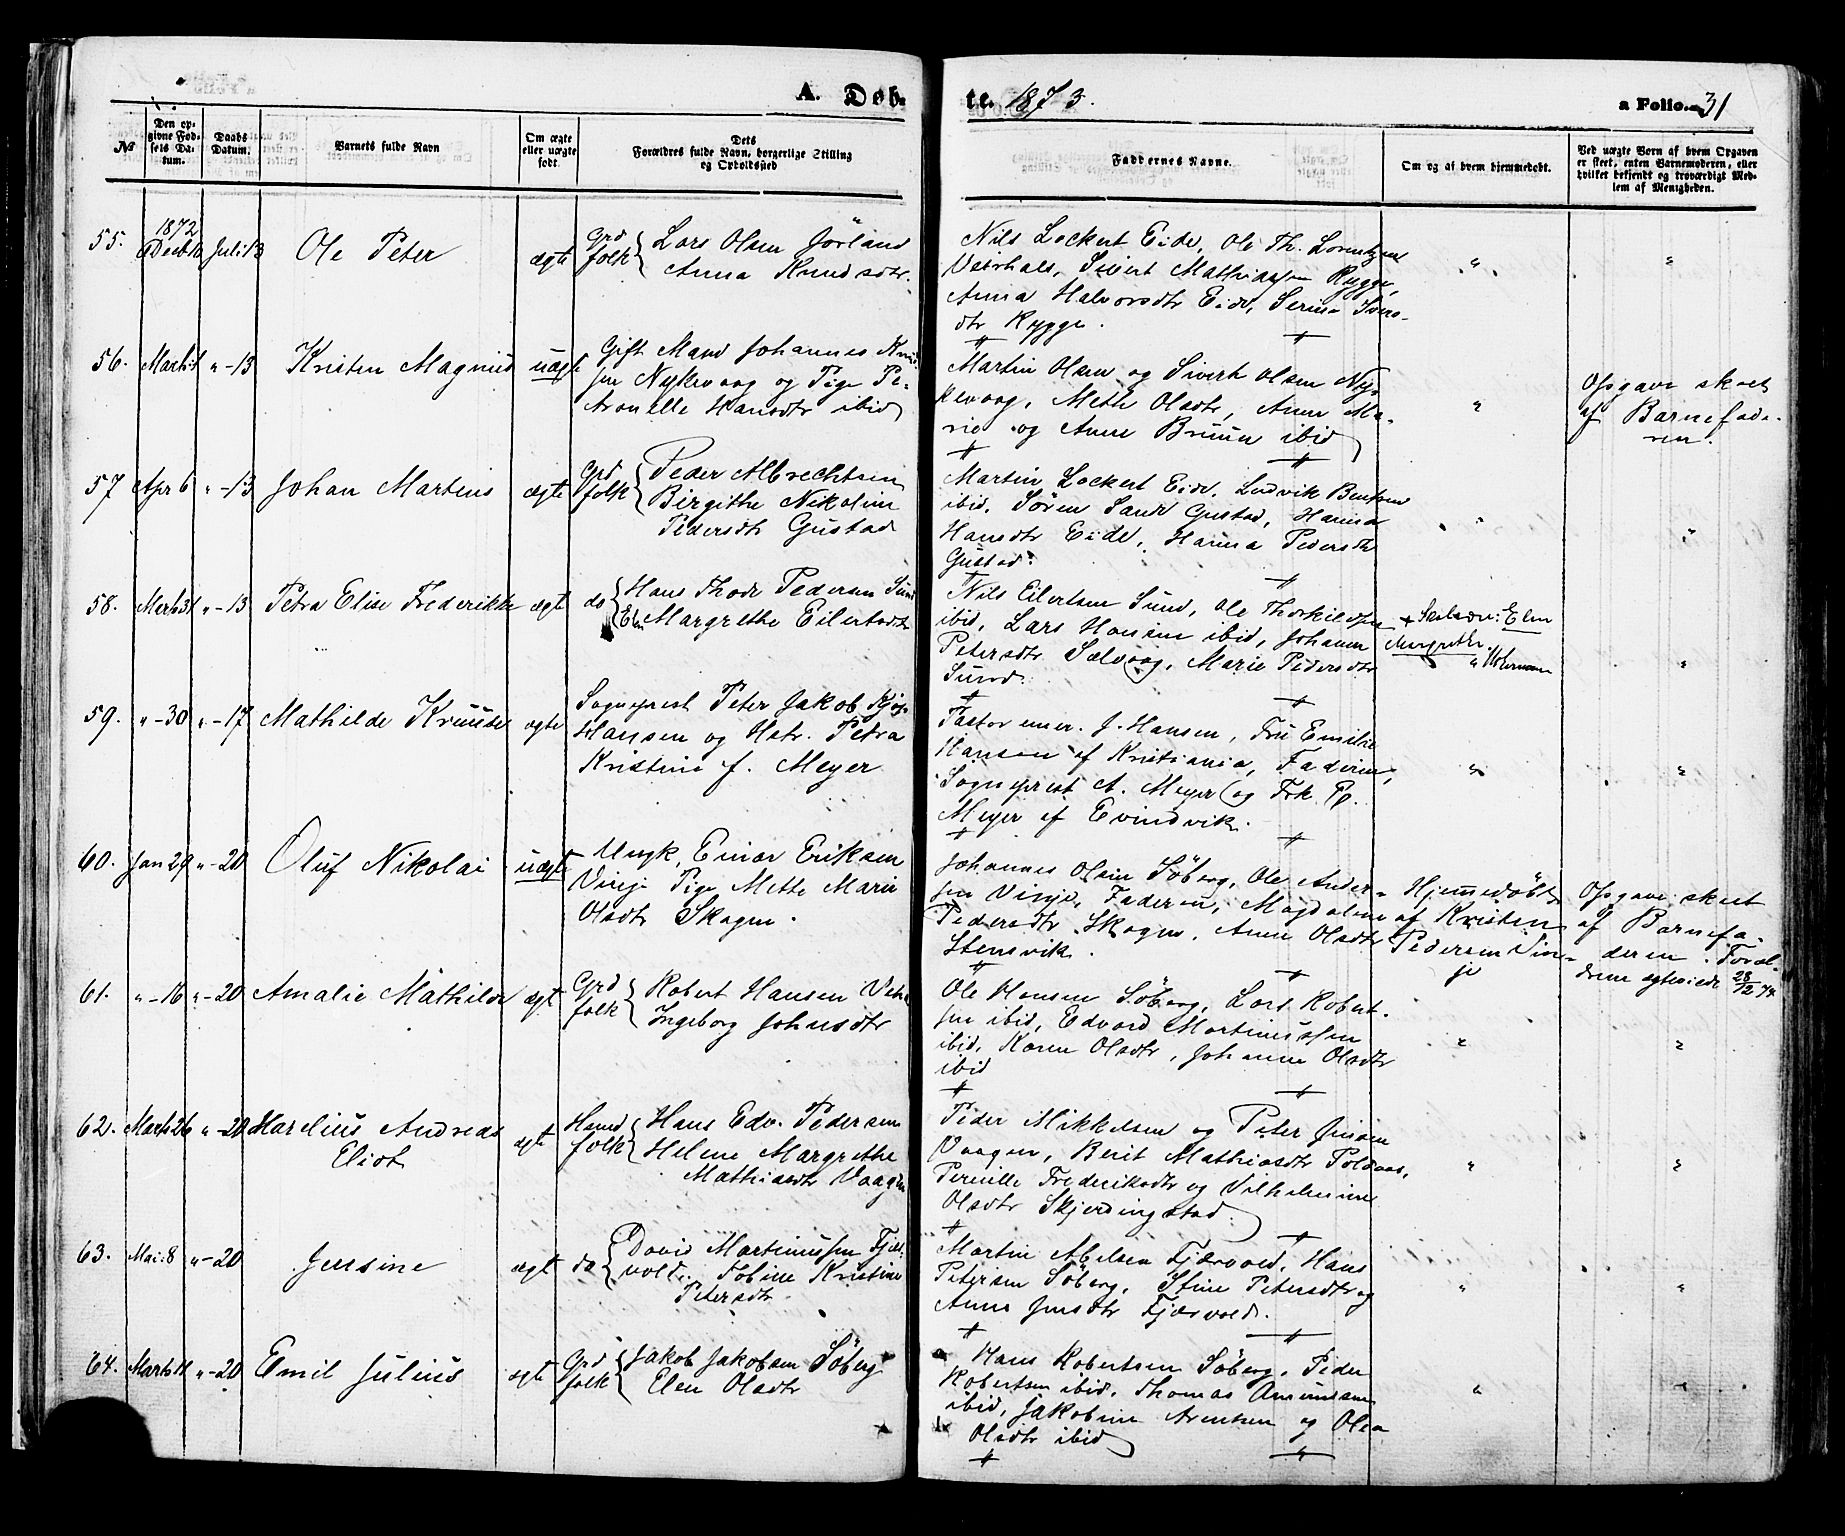 A. Døb-
te. 1873.
a Folio. 31
№
Den op-
givne Fød-
sels Da-
tum.
Daabs
Datum.
Barnets fulde Navn
Om ægte
eller uægte
født.
Dets
Forældres fulde Navn, borgerlige Stilling
og Opholdssted
Faddernes Navne.
Om og af hvem hjemmedøbt.
Ved uægte Børn af hvem Opgaven
er skeet, enten Barnemoderen, eller
hvilket bekjendt og troværdigt Med-
lem af Menigheden.
55.
1872
Juli 13
Ole Peter
ægte
Grd
folk
Lars Olsen Jörland
Anna Knudsdtr.
Nils Lockert Eide, Ole Th. Lorentzen
Veirhals, Sivert Mathiassen Rygge,
Anna Halvorsdtr Eide, Serina Ivers-
dtr Rygge.
56.
" -13
Kristen Magnus
uægt
Gift Mand Johannes Knud
sen Nykvaag og Pige Pe-
tronelle Hansdtr ibid
Martin Olsen og Sivert Olsen Ny-
kevaag, Meth Olsdtr, Anne Ma-
rie og Anne Bruun ibid
Opgave skeet
af Barnefade-
ren.
57
Apr 6
" -13
Johan Martins
ægte
Grd
folk
Peder Albrechtsen
Birgithe Nikoline
Pedersdtr Gustad
Martin Lockert Eide, Ludvik Bentsen
ibid, Sören Sand Gustad, Hanna
Hansdtr Eide, Hanna Pedersdtr
Gustad.
58.
Marts 31
" -13
Petra Elise Frederikke
ægt
do
Hans Thode Pedersen Sund
Eln Margrethe Eilertsdtr
Nils Eilertsen Sund, Ole Thorkildsen
ibid, Lars Hansen ibid, Johanna
Petersdtr Sælvaag, Marie Pedersdtr
Sund.
Elen
Margrethe
59.
" -30
" -17
Mathilde Kruuse
ægte
Sogneprest Peter Jakob
Hansen og Hstr. Petra
Kristine f. Meyer
Pastor emer. J. Hansen, Fru Emilie
Hansen af Kristiania, Faderen,
Sogneprest A. Meyer og Frk. P.
Meyer af Evindvik.
60.
Jan 29
" -20
Oluf Nikolai
uægt
Ungk. Einar Eriksen
Vinje Pige Mette Marie
Olsdtr Skagen.
Johannes Olsen Söberg, Ole Ander-
sen Vinje, Faderen, Magdalene
Pedersdtr Skagen, Anne Olsdtr
Stensvik.
Hjemmedøbt
af Kristen
Pedersen Vin-
je
Opgave skeet
af Barnefa-
deren. Foræl-
drene egteviede 28/12 74
61.
" -16
" -20
Amalie Mathilde
ægt
Grd
folk
Robert Hansen
Ingeborg Johnsdtr
Ole Hansen Söberg, Lars Robert-
sen ibid, Edvard Martinussen
ibid, Karen Olsdtr, Johanna Olsdtr
ibid
62.
Marts 26
" -20
Marelius Andreas
Eliot
ægt
Mand
folk
Hans Edv. Pedersen
Helene Margrethe
Mathiasdtr Vaagen
Peder Mikkelsen og Peter Jensen
Vaagen, Berit Mathiasdtr
Pernille Frederiksdtr og Vilhelmine
Olsdtr Skjerdingstad.
63.
Mai 8
" -20
Jensine
ægt
do
David Martinussen Fjær-
vold. Tobine Kristine
Petersdtr.
Martin Abelsen Fjærvold, Hans
Petersen Söberg, Stine Petersdtr og
Anne Jensdtr Fjærvold.
64.
Marts 11
" -20
Emil Julius
ægt
Grd
folk
Jakob Jakobsen Söberg
Elen Olsdtr
Hans Robertsen Söberg, Peder
Robertsen ibid, Thomas Amundsen
ibid, Jakobine Arentsen og Olea
Olsdtr ibid